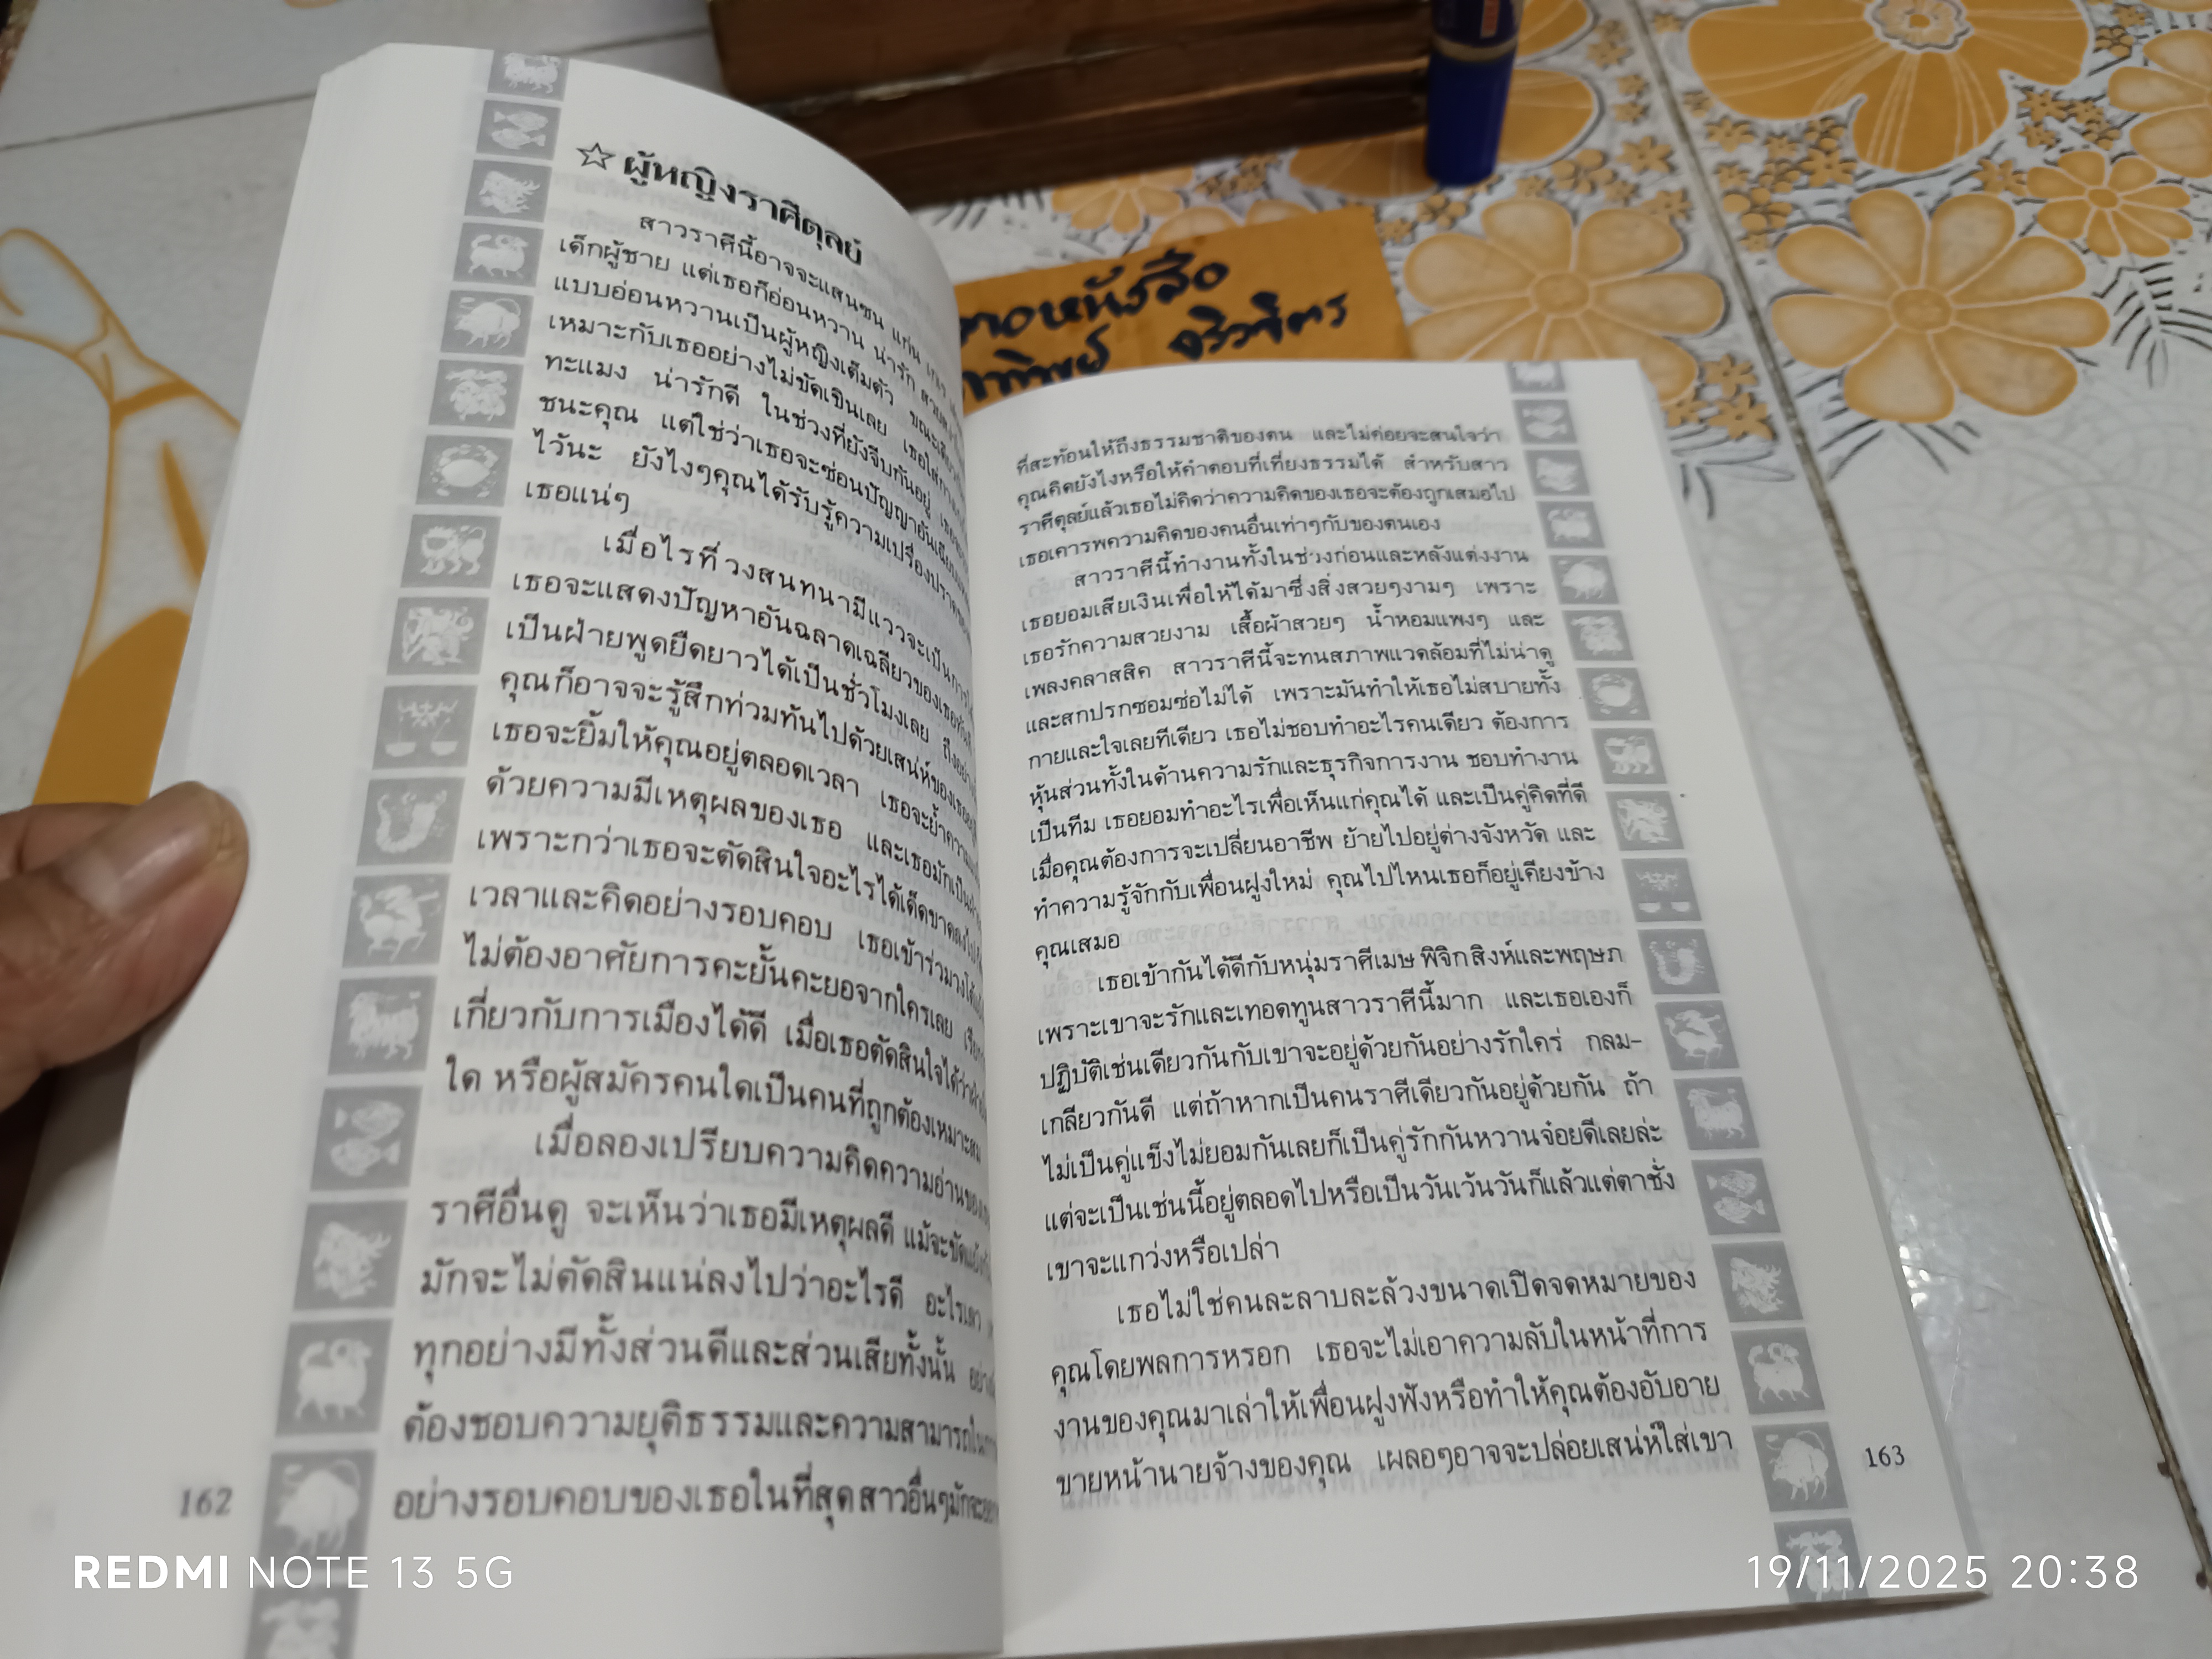 ☆ ผู้หญิงราศีตุลย์
สาวราศีนี้อาจจะแสนซน แก่น
เด็กผู้ชาย แต่เธอก็อ่อนหวาน น่ารัก
แบบอ่อนหวานเป็นผู้หญิงเต็มตัว
เหมาะกับเธออย่างไม่ขัดเขินเลย เธอใส่
ทะแมง น่ารักดี ในช่วงที่ยังจีบกันอยู่
ชนะคุณ แต่ใช่ว่าเธอจะซ่อนปัญญาอัน
ไว้นะ ยังไงๆคุณได้รับรู้ความเปรื่องปราด
เธอแน่ๆ
เมื่อไรที่วงสนทนามีแววจะเป็น
เธอจะแสดงปัญหาอันฉลาดเฉลียวของเธอ
เป็นฝ่ายพูดยืดยาวได้เป็นชั่วโมงเลย
คุณก็อาจจะรู้สึกท่วมท้นไปด้วยเสน่ห์ของเธอ
เธอจะยิ้มให้คุณอยู่ตลอดเวลา เธอจะย้ำ
ด้วยความมีเหตุผลของเธอ และเธอมักเป็น
เพราะกว่าเธอจะตัดสินใจอะไรได้เด็ดขาดลงไป
เวลาและคิดอย่างรอบคอบ เธอเข้าร่วมวง
ไม่ต้องอาศัยการคะยั้นคะยอจากใครเลย
เกี่ยวกับการเมืองได้ดี เมื่อเธอตัดสินใจได้ว่า
ใด หรือผู้สมัครคนใดเป็นคนที่ถูกต้องเหมาะสม
เมื่อลองเปรียบความคิดความอ่าน
ราศีอื่นดู จะเห็นว่าเธอมีเหตุผลดี แม้จะ
มักจะไม่ตัดสินแน่ลงไปว่าอะไรดี อะไรเลว
ทุกอย่างมีทั้งส่วนดีและส่วนเสียทั้งนั้น
ต้องชอบความยุติธรรมและความสามารถ
อย่างรอบคอบของเธอในที่สุด สาวอื่นๆมักจะ
162
หนังสือ
ที่สะท้อนให้ถึงธรรมชาติของตน และไม่ค่อยจะสนใจว่า
คุณคิดยังไงหรือให้คำตอบที่เที่ยงธรรมได้ สำหรับสาว
ราศีตุลย์แล้วเธอไม่คิดว่าความคิดของเธอจะต้องถูกเสมอไป
เธอเคารพความคิดของคนอื่นเท่าๆกับของตนเอง
สาวราศีนี้ทำงานทั้งในช่วงก่อนและหลังแต่งงาน
เธอยอมเสียเงินเพื่อให้ได้มาซึ่งสิ่งสวยๆงามๆ เพราะ
เธอรักความสวยงาม เสื้อผ้าสวยๆ น้ำหอมแพงๆ และ
เพลงคลาสสิค สาวราศีนี้จะทนสภาพแวดล้อมที่ไม่น่าดู
และสกปรกซอมซ่อไม่ได้ เพราะมันทำให้เธอไม่สบายทั้ง
กายและใจเลยทีเดียว เธอไม่ชอบทำอะไรคนเดียว ต้องการ
หุ้นส่วนทั้งในด้านความรักและธุรกิจการงาน ชอบทำงาน
เป็นทีม เธอยอมทำอะไรเพื่อเห็นแก่คุณได้ และเป็นคู่คิดที่ดี
เมื่อคุณต้องการจะเปลี่ยนอาชีพ ย้ายไปอยู่ต่างจังหวัด และ
ทำความรู้จักกับเพื่อนฝูงใหม่ คุณไปไหนเธอก็อยู่เคียงข้าง
คุณเสมอ
เธอเข้ากันได้ดีกับหนุ่มราศีเมษ พิจิก สิงห์และพฤษภ
เพราะเขาจะรักและเทอดทูนสาวราศีนี้มาก และเธอเองก็
ปฏิบัติเช่นเดียวกันกับเขาจะอยู่ด้วยกันอย่างรักใคร่ กลม-
เกลียวกันดี แต่ถ้าหากเป็นคนราศีเดียวกันอยู่ด้วยกัน ถ้า
ไม่เป็นคู่แข็งไม่ยอมกันเลยก็เป็นคู่รักกันหวานจ๋อยดีเลยล่ะ
แต่จะเป็นเช่นนี้อยู่ตลอดไปหรือเป็นวันเว้นวันก็แล้วแต่ตาชั่ง
เขาจะแกว่งหรือเปล่า
เธอไม่ใช่คนละลาบละล้วงขนาดเปิดจดหมายของ
คุณโดยพลการหรอก เธอจะไม่เอาความลับในหน้าที่การ
งานของคุณมาเล่าให้เพื่อนฝูงฟังหรือทำให้คุณต้องอับอาย
ขายหน้านายจ้างของคุณ เผลอๆอาจจะปล่อยเสน่ห์ใส่เขา
163
REDMI NOTE 13 5G
19/11/2025 20:38